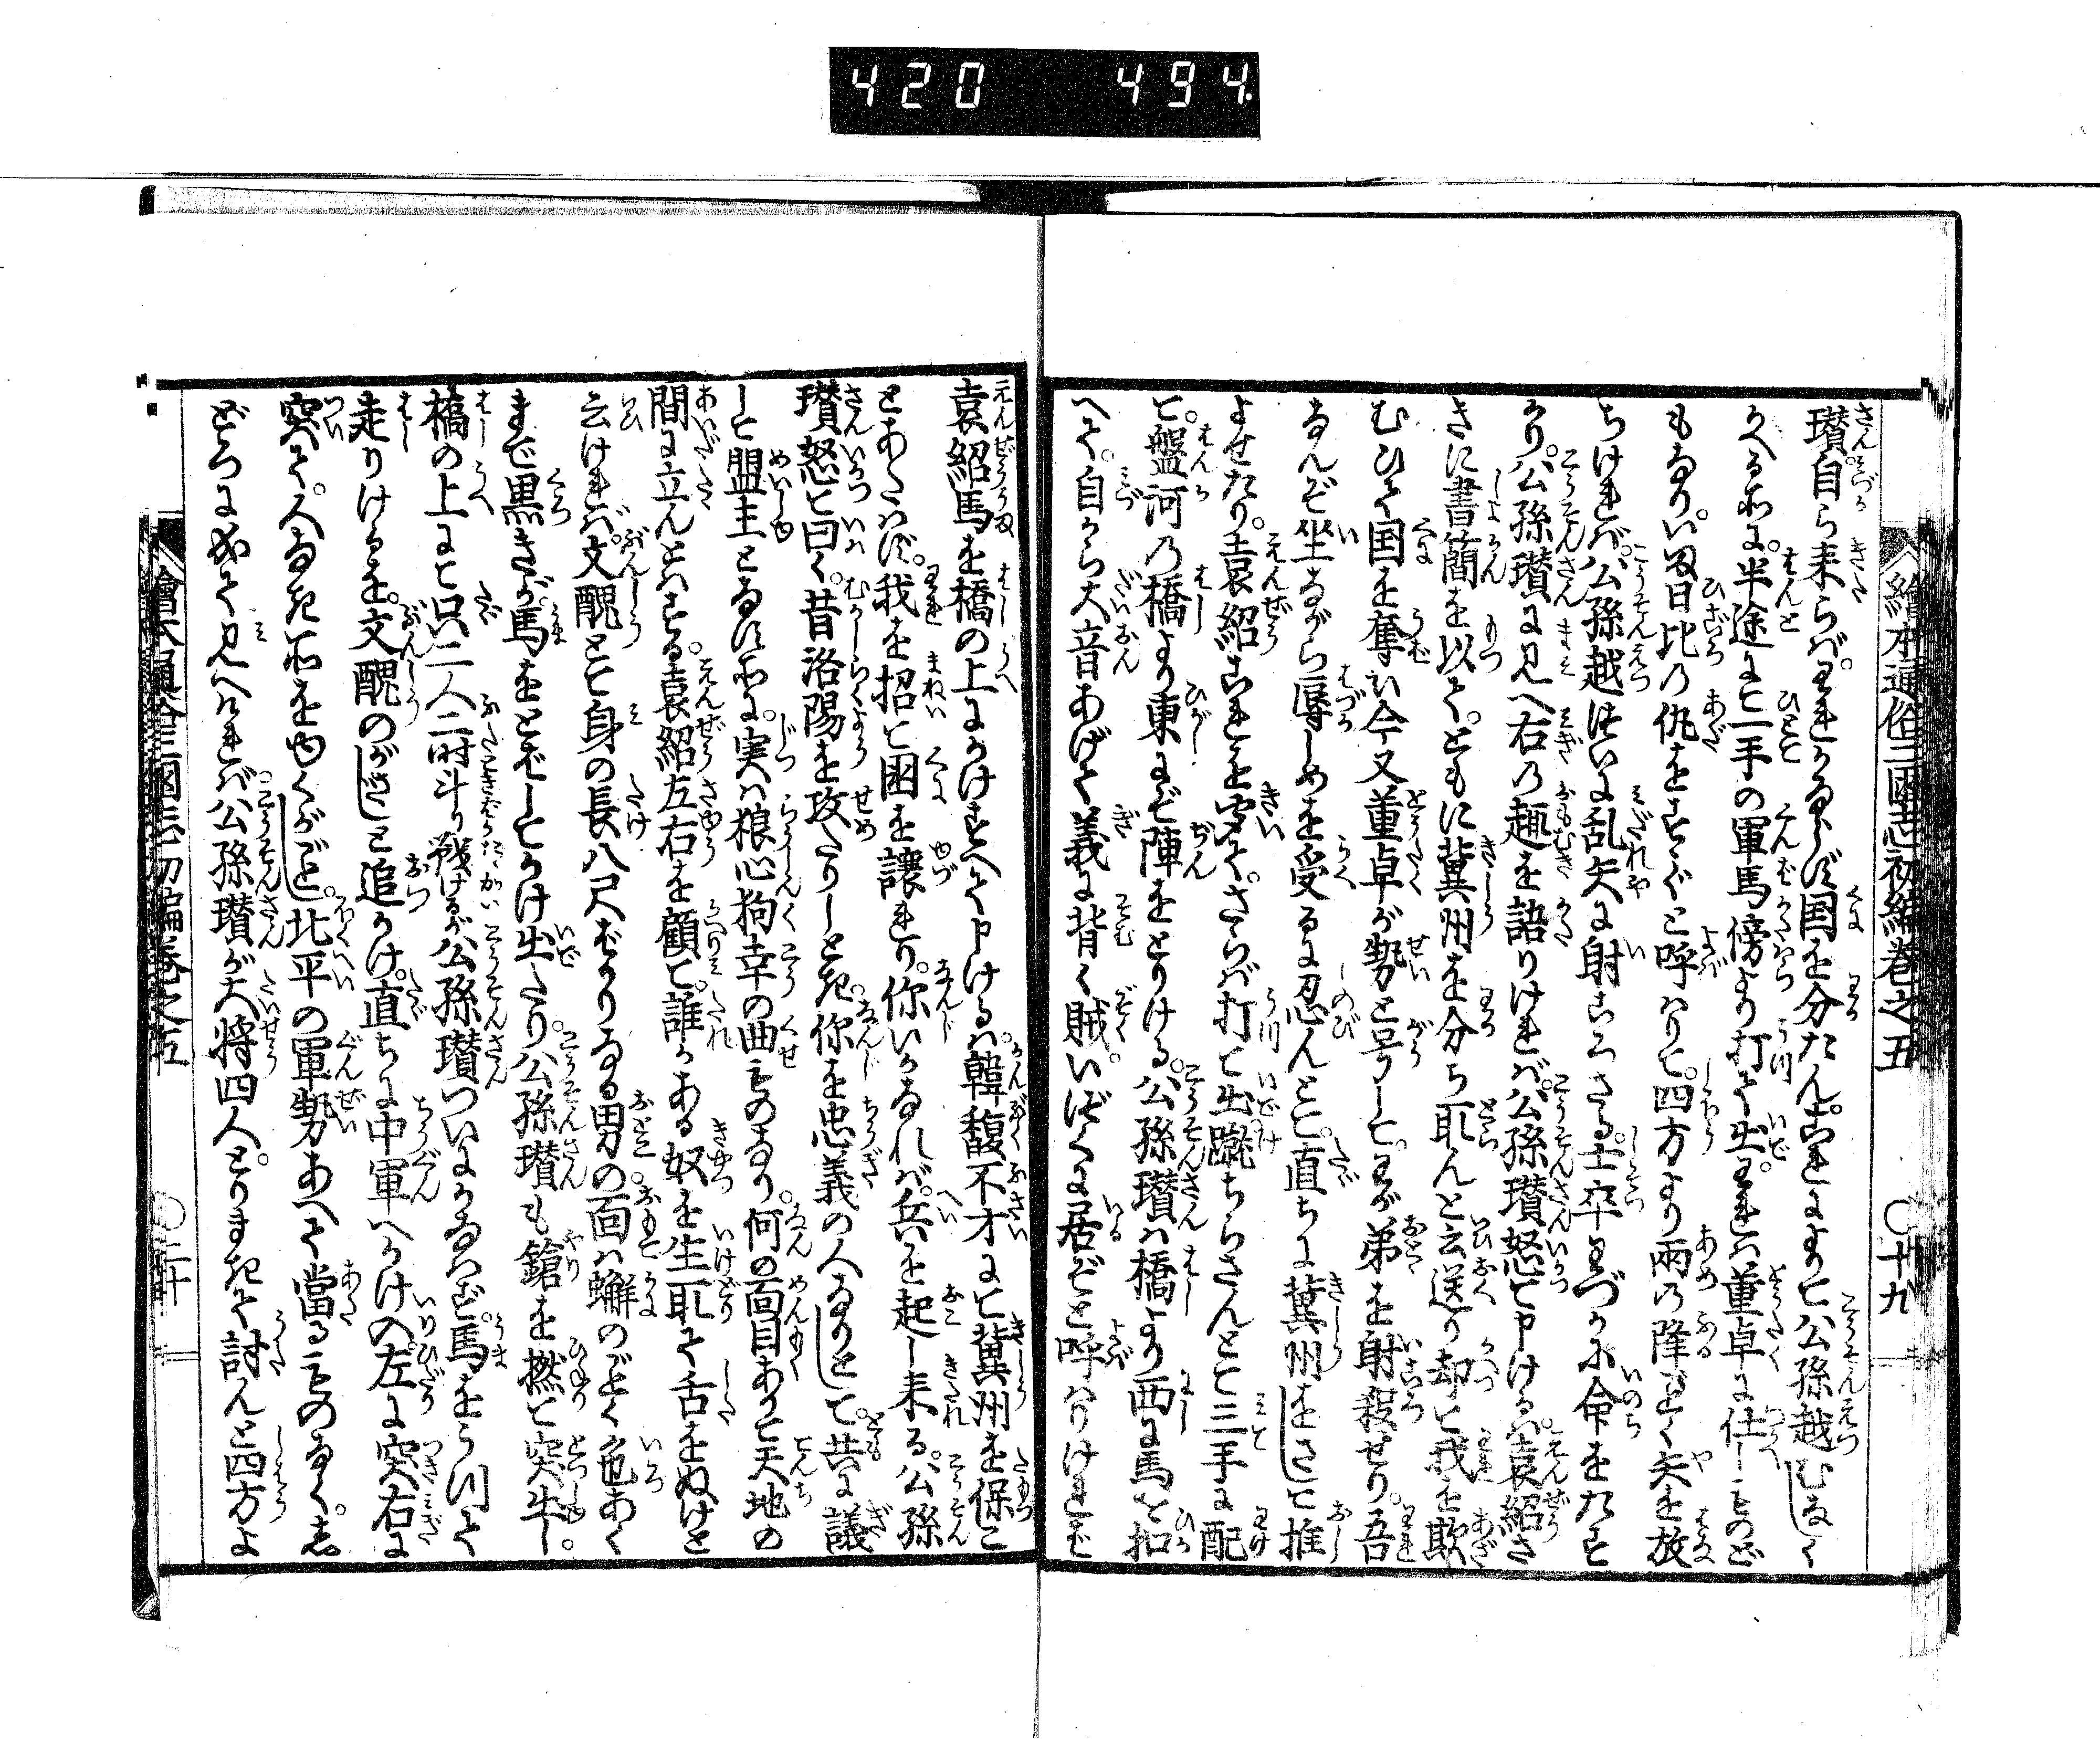 420 494
繪本通俗三國志初編卷之五 〇十九
瓚自ら来らばわれかならず国を分たんこれによりて公孫越むなしく
かへる所に半途にて一手の軍馬傍より打て出われは董卓に仕しものど
もなり。日比の仇をすゝぐと呼はりて四方より雨の降ごとく矢を放
ちければ公孫越つゐに乱矢に射ころさる士卒わづかに命をたすか
り公孫瓚に見へ右の趣を語りければ公孫瓚怒て申けるは袁紹さ
きに書簡を以て。ともに冀州を分ち取んと云送り却て我を欺
むひて国を奪い今又董卓が勢と号して。わが弟を射殺せり。吾
なんぞ坐ながら辱しめを受るに忍んとて直ちに冀州をさして推
よせたり。袁紹これを聞て。さらば打て出蹴ちらさんとて三手に配
て。盤河の橋より東にぞ陣をとりける。公孫瓚は橋より西に馬を扣
へて。自から大音あげて義に背く賊。いづくに居ぞと呼はりければ
袁紹馬を橋の上にかけすへて申けるは韓馥不才にて冀州を保こ
とあたはず。我を招て国を譲れり。你いかなれば。兵を起し来る。公孫
瓚怒て曰く。昔洛陽を攻たりしとき。你を忠義の人なりとして。共に議
して盟主となす所に。実は狼心狗幸の曲ものなり。何の面目ありて天地の
間に立んとはする。袁紹左右を顧て。誰かある奴を生取て舌をぬけと
云ければ。文醜とて身の長八尺ばかりなる男の面は蠏のごとく色あく
まで黒きが馬をとばしてかけ出たり。公孫瓚も鎗を撚て突出し。
橋の上にて只二人二時斗り戦けるが公孫瓚ついにかなはず。馬をうつて
走りけるを。文醜のがさじと追かけ。直ちに中軍へかけ入左に突右に
突て。人なき所をゆくがごとし。北平の軍勢あへて當るものなく。志
どろに成て見へければ公孫瓚が大将四人。とりまきて討んと四方よ
繪本通俗三國志初編卷之五 〇二十